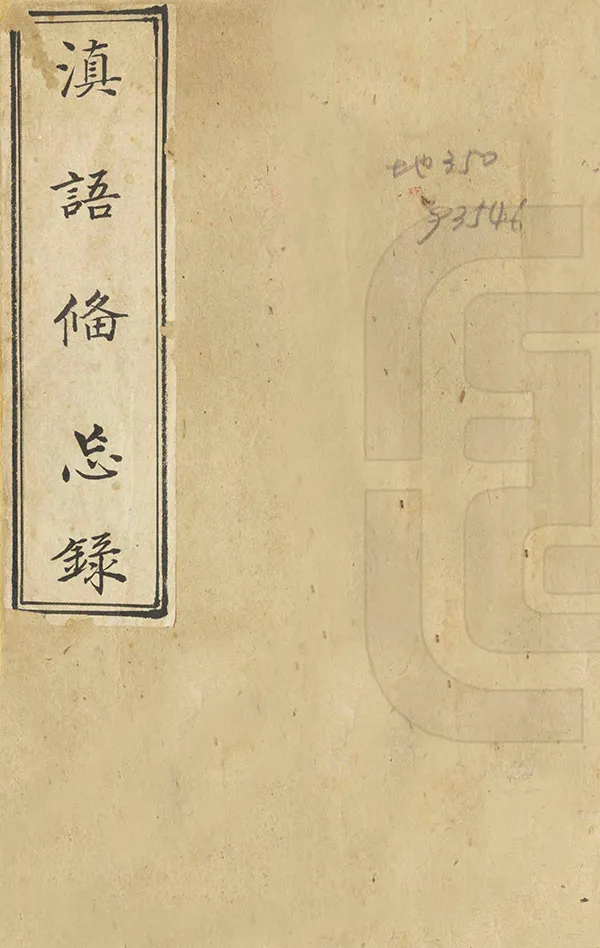 滇語俻忘錄
地350